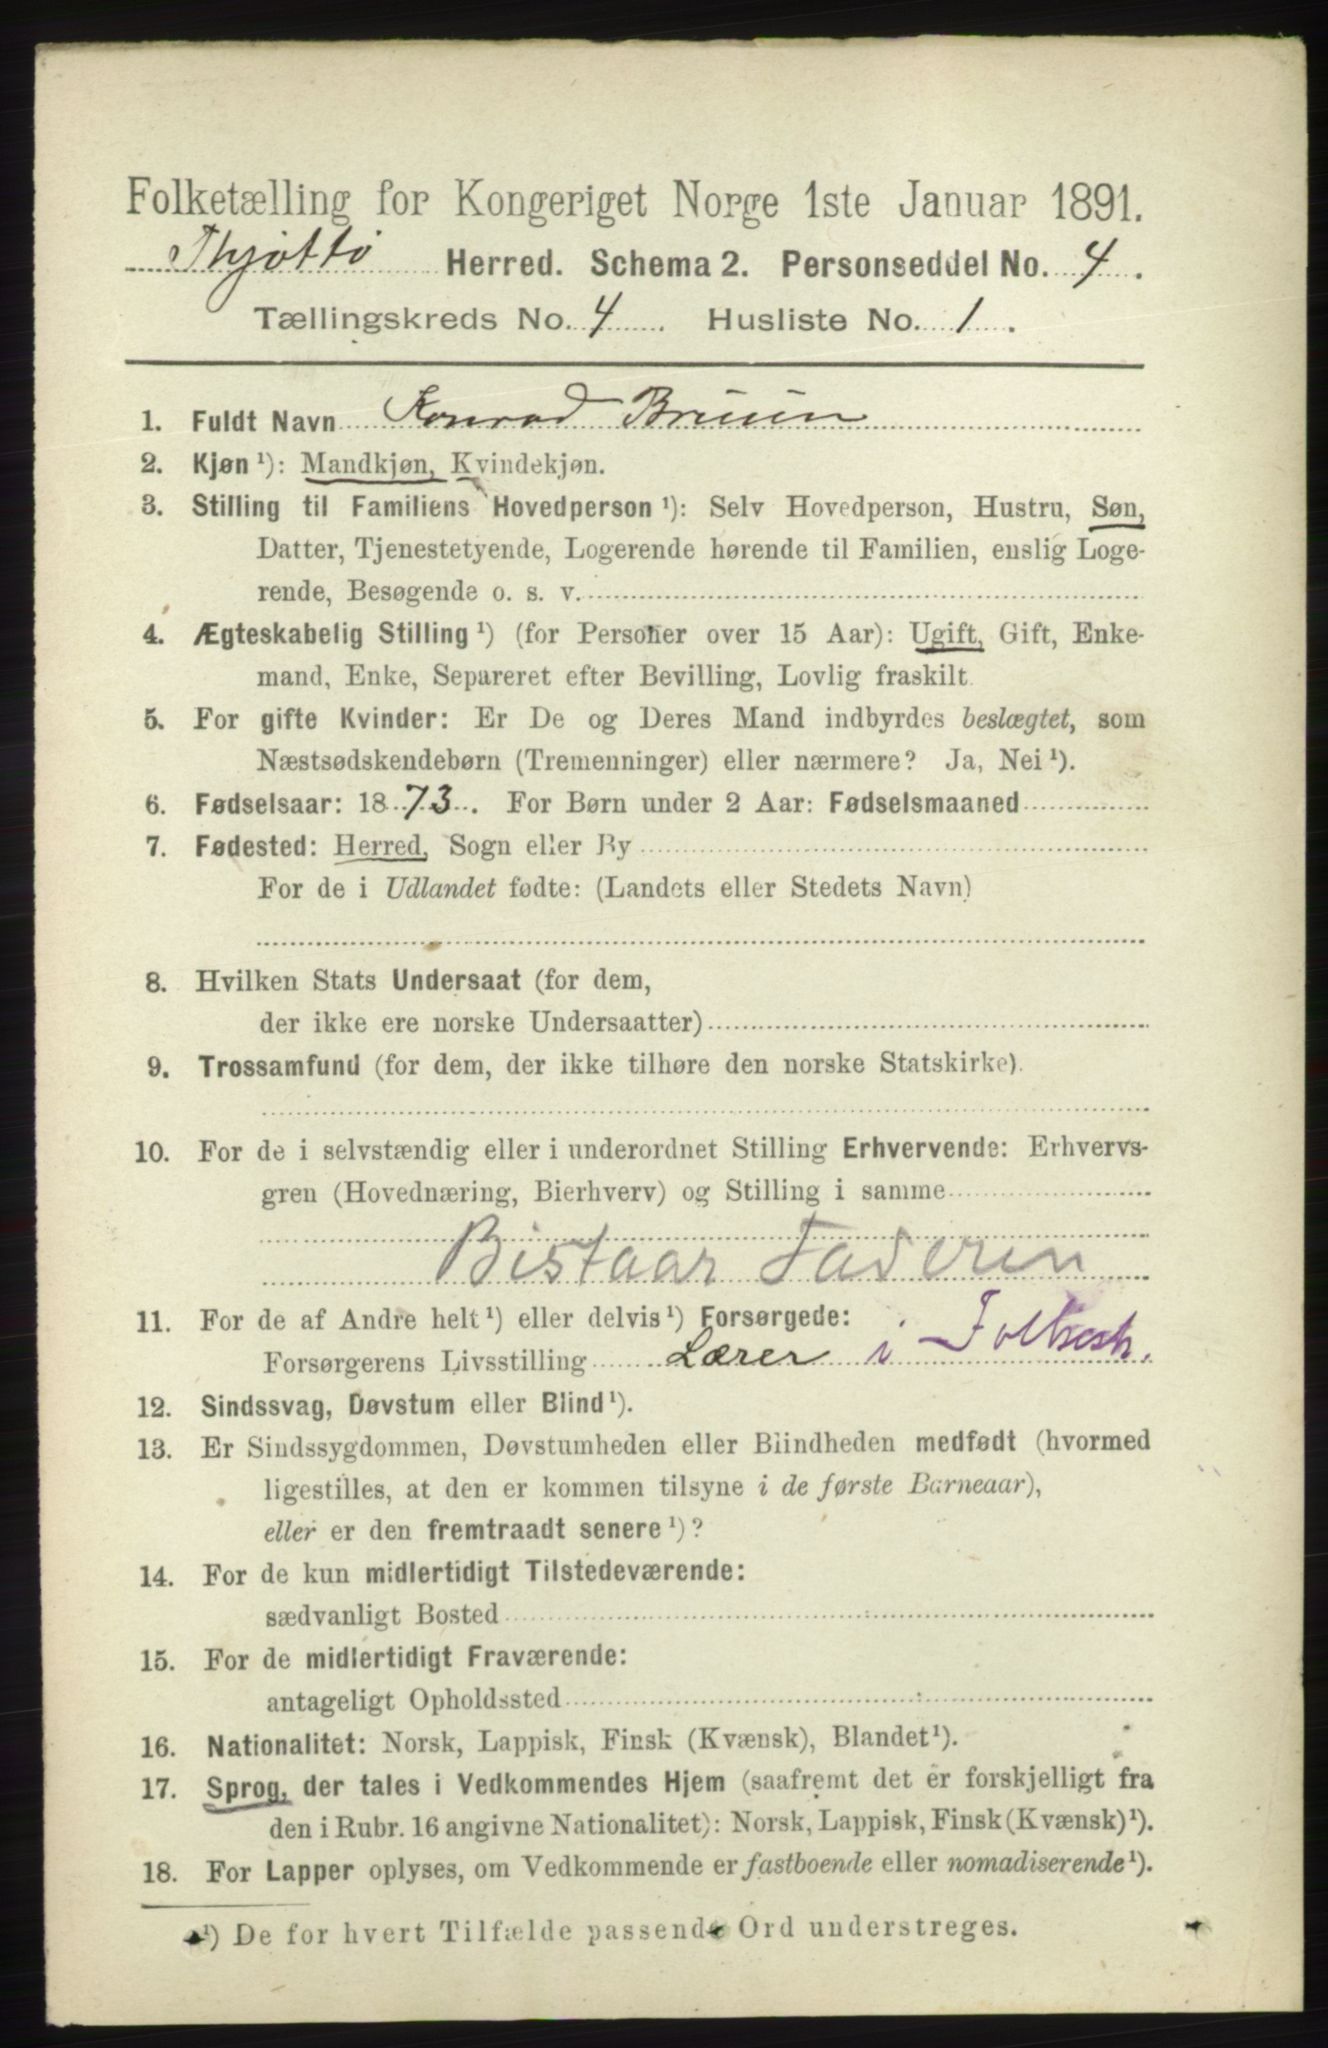 Folketælling for Kongeriget Norge 1ste Januar 1891.
Thjøttø Herred. Schema 2. Personseddel No. 4.
Tællingskreds No. 4. Husliste No. 1.
1. Fuldt Navn Konrad Bruun
2. Kjøn¹): Mandkjøn, Kvindekjøn.
3. Stilling til Familiens Hovedperson¹): Selv Hovedperson, Hustru, Søn,
Datter, Tjenestetyende, Logerende hørende til Familien, enslig Loge-
rende, Besøgende o. s. v.
4. Ægteskabelig Stilling¹) (for Personer over 15 Aar): Ugift, Gift, Enke-
mand, Enke, Separeret efter Bevilling, Lovlig fraskilt.
5. For gifte Kvinder: Er De og Deres Mand indbyrdes beslægtet, som
Næstsødskendebørn (Tremenninger) eller nærmere? Ja, Nei¹).
6. Fødselsaar: 1873. For Børn under 2 Aar: Fødselsmaaned
7. Fødested: Herred, Sogn eller By
For de i Udlandet fødte: (Landets eller Stedets Navn)
8. Hvilken Stats Undersaat (for dem,
der ikke ere norske Undersaatter)
9. Trossamfund (for dem, der ikke tilhøre den norske Statskirke).
10. For de i selvstændig eller i underordnet Stilling Erhvervende: Erhvervs-
gren (Hovednæring, Bierhverv) og Stilling i samme
Bistaar Faderen
11. For de af Andre helt¹) eller delvis¹) Forsørgede:
Forsørgerens Livsstilling Lærer i Folkesk.
12. Sindssvag, Døvstum eller Blind¹).
13. Er Sindssygdommen, Døvstumheden eller Blindheden medfødt (hvormed
ligestilles, at den er kommen tilsyne i de første Barneaar),
eller er den fremtraadt senere¹)?
14. For de kun midlertidigt Tilstedeværende:
sædvanligt Bosted
15. For de midlertidigt Fraværende:
antageligt Opholdssted
16. Nationalitet: Norsk, Lappisk, Finsk (Kvænsk), Blandet¹).
17. Sprog, der tales i Vedkommendes Hjem (saafremt det er forskjelligt fra
den i Rubr. 16 angivne Nationalitet): Norsk, Lappisk, Finsk (Kvænsk)¹).
18. For Lapper oplyses, om Vedkommende er fastboende eller nomadiserende¹).
¹) De for hvert Tilfælde passende Ord understreges.